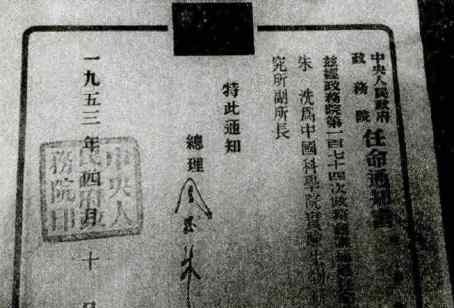 中央人民政府
政務院
任命通知書
茲經政務院第一百七十四次政務會議
朱 洗為中國科學院實驗生
究所副所長
特此通知
總理
一九五三年四月
十
中央人
民政府政
務院印